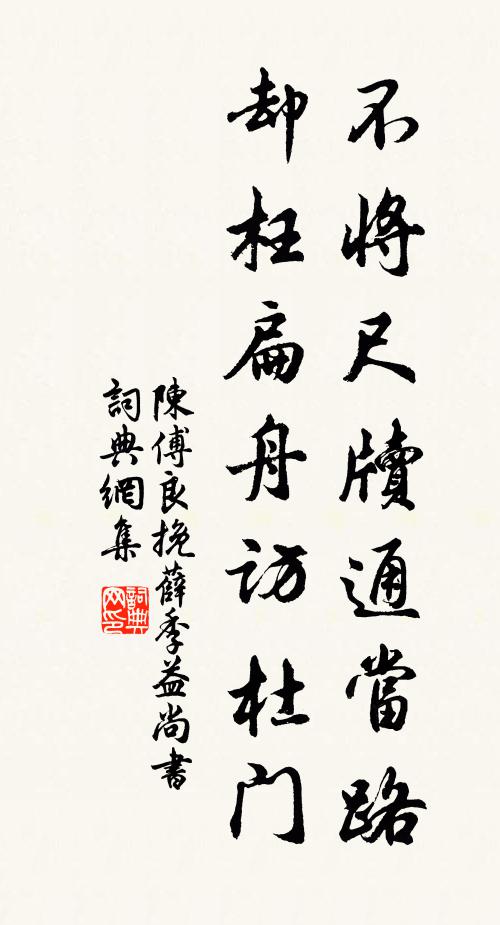 不將尺牘通當路
却枉扁舟訪杜門
陳傅良挽薛季益尚書
詞典網集
詞典网印